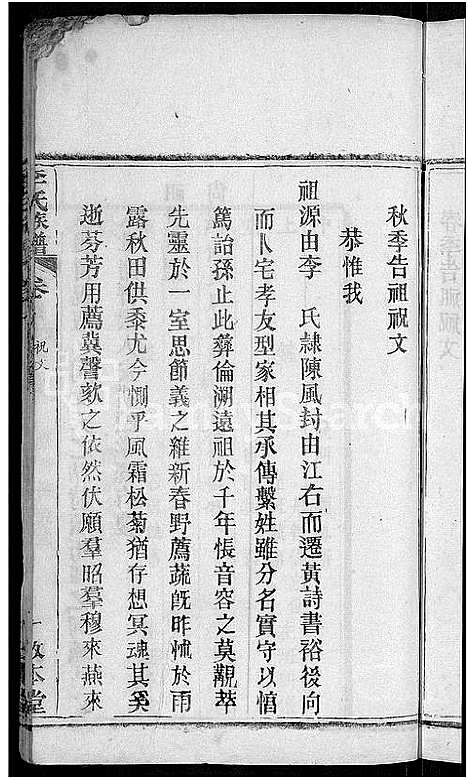 秋季告祖祝文
恭惟我
祖源由李　氏隷陳風封由江右而遷黃詩書裕後向
而卜宅孝友型家相其承傳繫姓雖分名實守以愼
篤詒孫止此彝倫溯遠祖於千年悵音容之莫覿萃
先靈於一室思節義之維新春野薦蔬旣昨怵於雨
露秋田供黍尤今惻乎風霜松菊猶存想冥魂其奚
逝芬芳用薦冀謦欬之依然伏願羣昭羣穆來燕來
氏族譜　卷　祝文　敦本堂